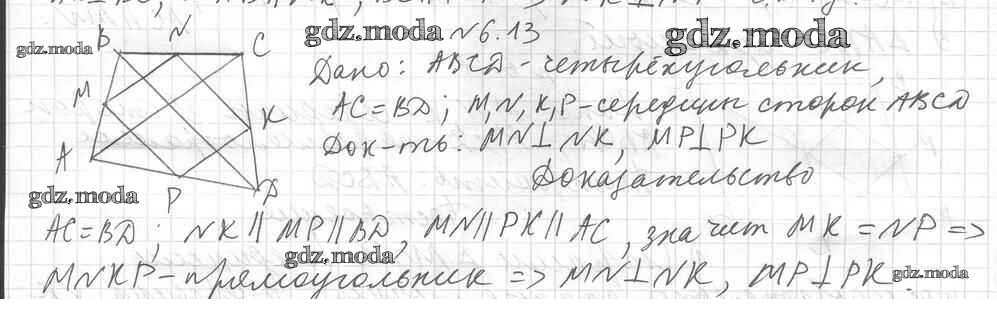 gdz.moda
gdz.moda
gdz.moda
№6.13
B N C
M K
A P D
Дано: ABCD - четырёхугольник,
AC=BD; M,N,K,P-середины сторон ABCD
Док-ть: MN⊥NK, MP⊥PK
Доказательство
gdz.moda
AC=BD; NK∥MP∥BD, MN∥PK∥AC, значит MK=NP=>
gdz.moda
MNKP-прямоугольник => MN⊥NK, MP⊥PK.
gdz.moda